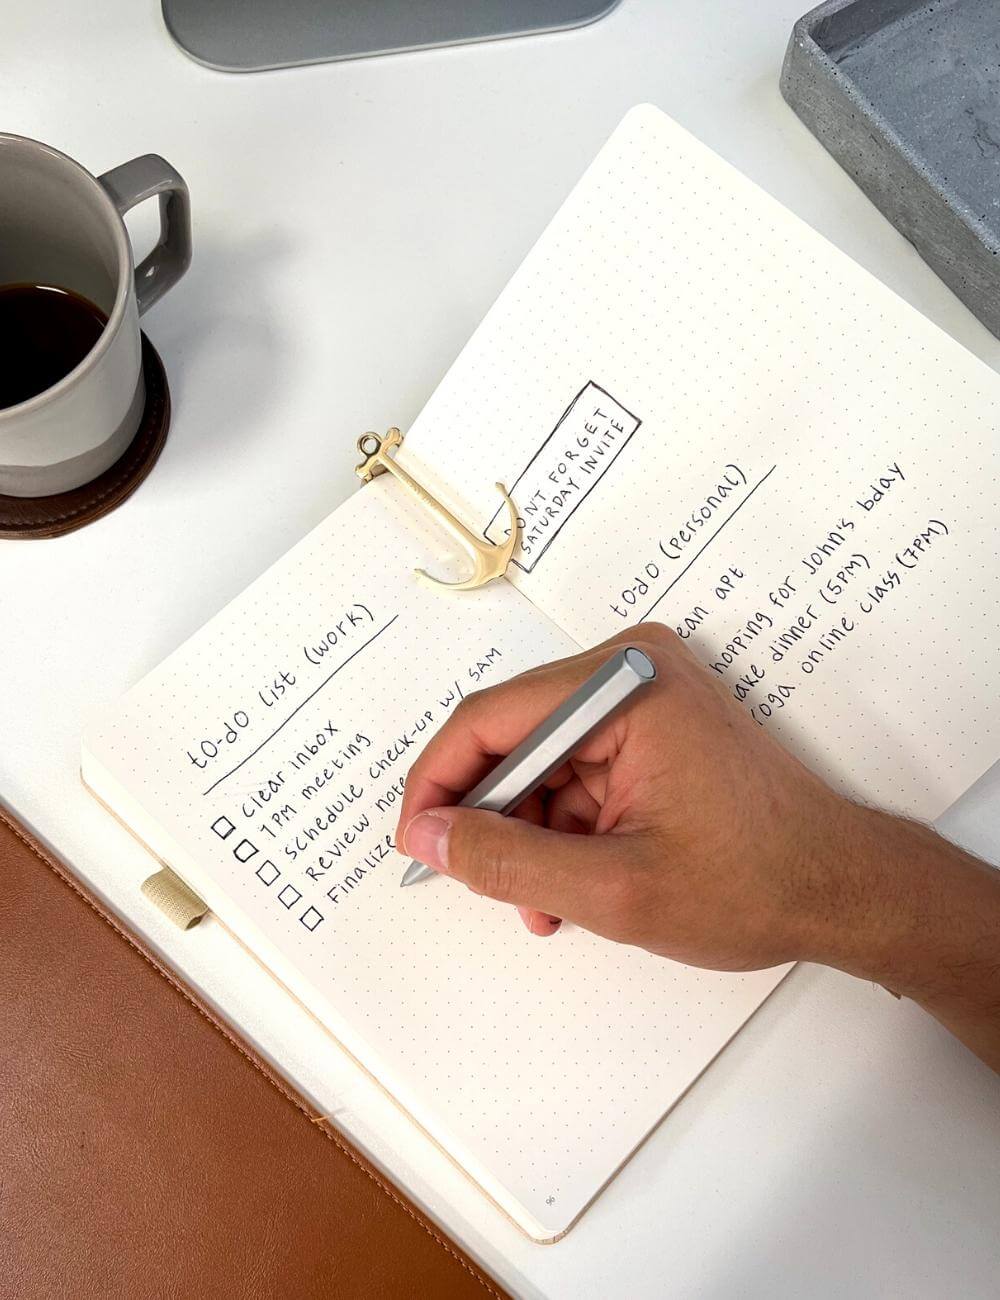 to-do list (work)
Clear inbox
1PM meeting
schedule check-up w/ SAM
Review note
Finalize
96
DON'T FORGET
SATURDAY INVITE
to-do (personal)
ean apt
hopping for John's bday
ake dinner (5PM)
oga online class (7PM)